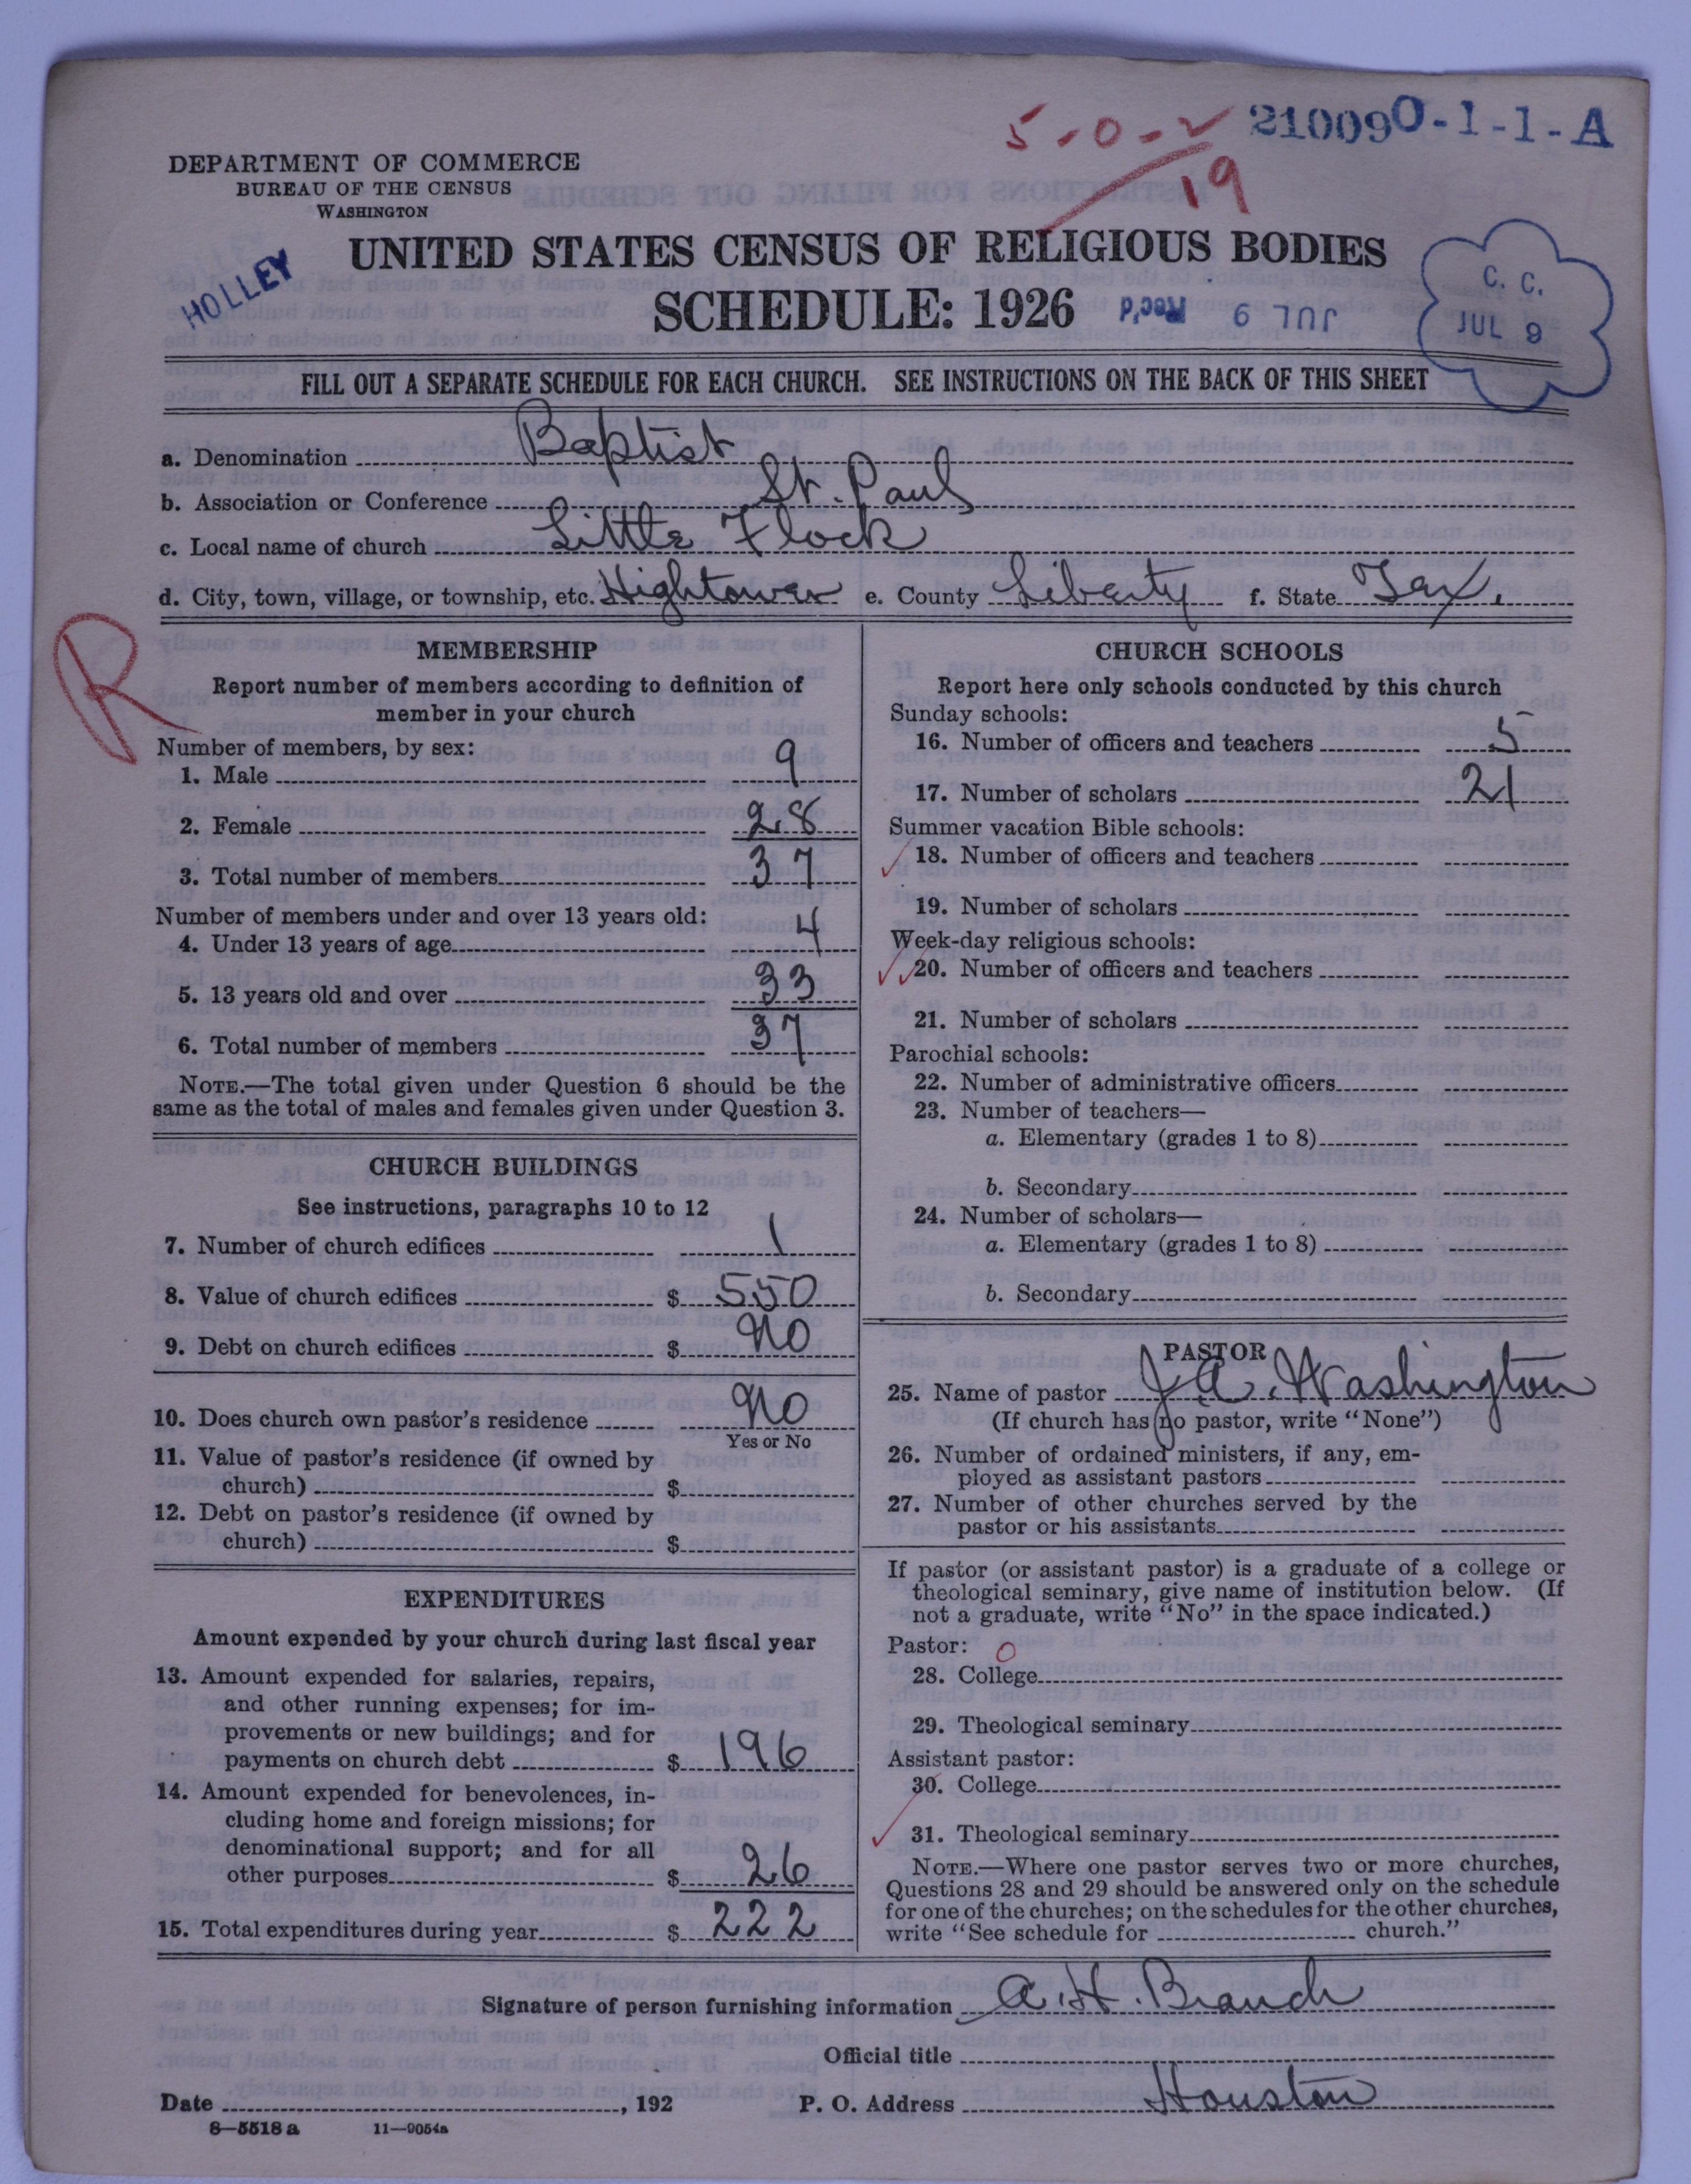 5-0-2
19
210090-1-1-A
DEPARTMENT OF COMMERCE
BUREAU OF THE CENSUS
WASHINGTON
HOLLEY
UNITED STATES CENSUS OF RELIGIOUS BODIES
SCHEDULE: 1926
Rec'd JUL 9
C. C.
JUL 9
FILL OUT A SEPARATE SCHEDULE FOR EACH CHURCH. SEE INSTRUCTIONS ON THE BACK OF THIS SHEET
a. Denomination Baptist
b. Association or Conference St. Paul
c. Local name of church Little Flock
d. City, town, village, or township, etc. Hightower e. County Liberty f. State Tex.
R
MEMBERSHIP
Report number of members according to definition of
member in your church
Number of members, by sex:
1. Male 9
2. Female 28
3. Total number of members 37
Number of members under and over 13 years old:
4. Under 13 years of age 4
5. 13 years old and over 33
6. Total number of members 37
NOTE.—The total given under Question 6 should be the
same as the total of males and females given under Question 3.
CHURCH BUILDINGS
See instructions, paragraphs 10 to 12
7. Number of church edifices 1
8. Value of church edifices $ 550
9. Debt on church edifices $ No
10. Does church own pastor's residence No
Yes or No
11. Value of pastor's residence (if owned by
church) $
12. Debt on pastor's residence (if owned by
church) $
EXPENDITURES
Amount expended by your church during last fiscal year
13. Amount expended for salaries, repairs,
and other running expenses; for im-
provements or new buildings; and for
payments on church debt $ 196
14. Amount expended for benevolences, in-
cluding home and foreign missions; for
denominational support; and for all
other purposes $ 26
15. Total expenditures during year $ 222
CHURCH SCHOOLS
Report here only schools conducted by this church
Sunday schools:
16. Number of officers and teachers 5
17. Number of scholars 21
Summer vacation Bible schools:
18. Number of officers and teachers
19. Number of scholars
Week-day religious schools:
20. Number of officers and teachers
21. Number of scholars
Parochial schools:
22. Number of administrative officers
23. Number of teachers—
a. Elementary (grades 1 to 8)
b. Secondary
24. Number of scholars—
a. Elementary (grades 1 to 8)
b. Secondary
PASTOR
25. Name of pastor J. A. Washington
(If church has no pastor, write "None")
26. Number of ordained ministers, if any, em-
ployed as assistant pastors
27. Number of other churches served by the
pastor or his assistants
If pastor (or assistant pastor) is a graduate of a college or
theological seminary, give name of institution below. (If
not a graduate, write "No" in the space indicated.)
Pastor: 0
28. College
29. Theological seminary
Assistant pastor:
30. College
31. Theological seminary
NOTE.—Where one pastor serves two or more churches,
Questions 28 and 29 should be answered only on the schedule
for one of the churches; on the schedules for the other churches,
write "See schedule for church."
Signature of person furnishing information A. H. Branch
Official title
Date , 192 P. O. Address Houston
8—5518 a 11—9054a